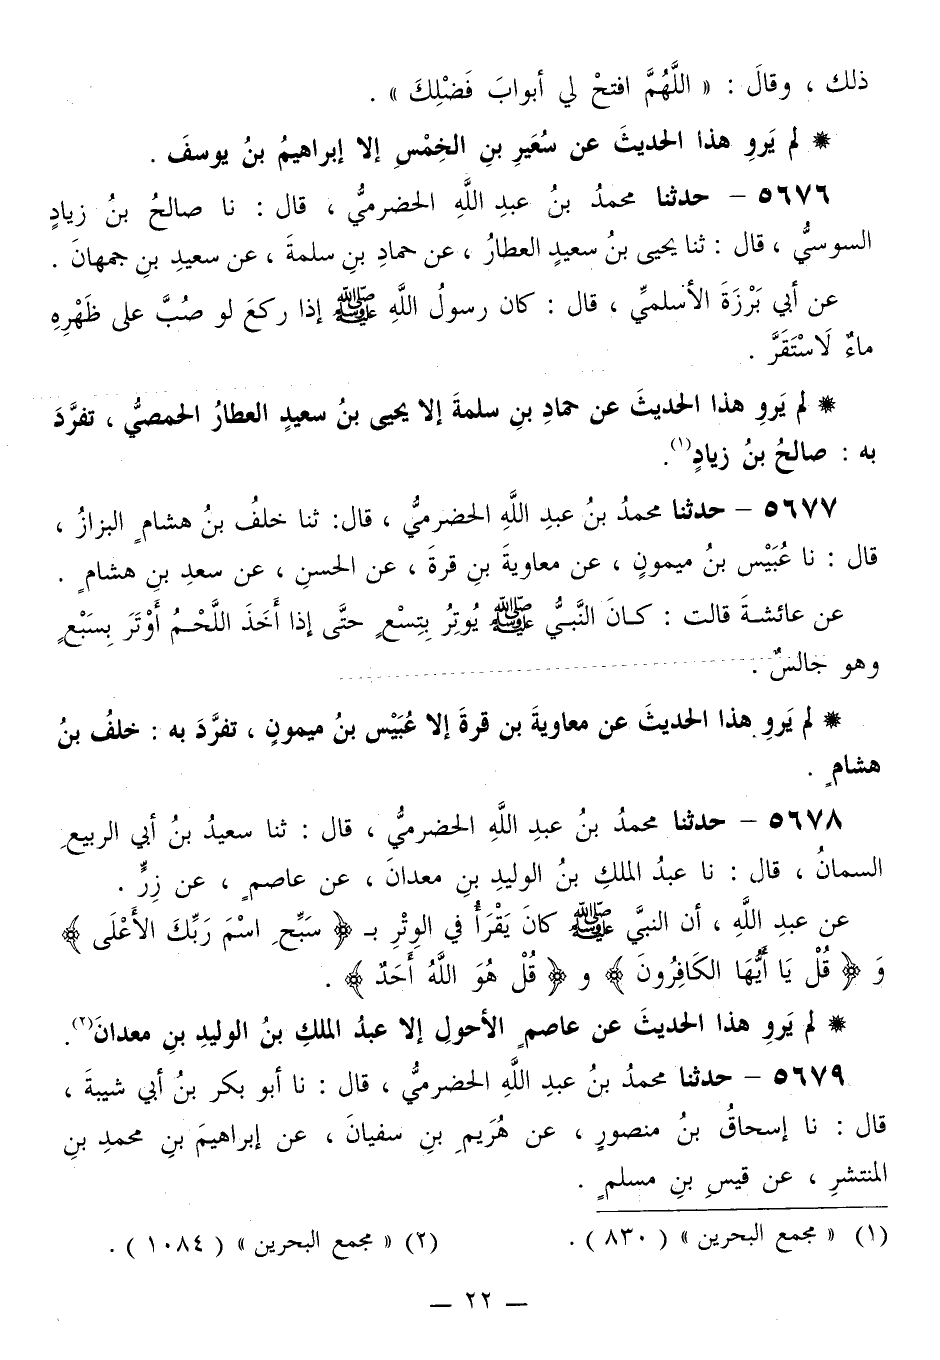 ذلك ، وقالَ : « اللَّهُمَّ افتحْ لي أبوابَ فَضْلِكَ » .
* لم يَروِ هذا الحديثَ عن سُعَيرِ بنِ الخِمْسِ إلا إبراهيمُ بنُ يوسفَ .
٥٦٧٦ – حدثنا محمدُ بنُ عبدِ اللَّهِ الحضرميُّ ، قال : نا صالحُ بنُ زيادٍ
السوسيُّ ، قال : ثنا يحيى بنُ سعيدٍ العطارُ ، عن حمادِ بنِ سلمةَ ، عن سعيدِ بنِ جمهانَ .
عن أبي بَرْزَةَ الأسلميِّ ، قال : كان رسولُ اللَّهِ ﷺ إذا ركعَ لو صُبَّ على ظَهْرِهِ
ماءٌ لَاسْتَقَرَّ .
* لم يَروِ هذا الحديثَ عن حمادِ بنِ سلمةَ إلا يحيى بنُ سعيدٍ العطارُ الحمصيُّ ، تفرَّدَ
به : صالحُ بنُ زيادٍ(١).
٥٦٧٧ – حدثنا محمدُ بنُ عبدِ اللَّهِ الحضرميُّ ، قال: ثنا خلفُ بنُ هشامٍ البزازُ ،
قال : نا عُبَيْسُ بنُ ميمونٍ ، عن معاويةَ بنِ قرةَ ، عن الحسنِ ، عن سعدِ بنِ هشامٍ .
عن عائشةَ قالت : كـانَ النَّبيُّ ﷺ يُوتِرُ بِتِسْعٍ حتَّى إذا أَخَذَ اللَّحْمُ أَوْتَرَ بِسَبْعٍ
وهو جالسٌ .
* لم يَروِ هذا الحديثَ عن معاويةَ بن قرةَ إلا عُبَيْس بنُ ميمونٍ ، تفرَّدَ به : خلفُ بنُ
هشامٍ .
٥٦٧٨ – حدثنا محمدُ بنُ عبدِ اللَّهِ الحضرميُّ ، قال : ثنا سعيدُ بنُ أبي الربيعِ
السمانُ ، قال : نا عبدُ الملكِ بنُ الوليدِ بنِ معدانَ ، عن عاصمٍ ، عن زِرٍّ .
عن عبدِ اللَّهِ ، أن النبيَّ ﷺ كانَ يَقْرَأُ في الوِتْرِ بـ ﴿ سَبِّحِ اسْمَ رَبِّكَ الأَعْلَى ﴾
وَ ﴿ قُلْ يَا أَيُّهَا الكَافِرُونَ ﴾ و ﴿ قُلْ هُوَ اللَّهُ أَحَدٌ ﴾ .
* لم يَروِ هذا الحديثَ عن عاصمٍ الأحولِ إلا عبدُ الملكِ بنُ الوليدِ بنِ معدانَ(٢).
٥٦٧٩ – حدثنا محمدُ بنُ عبدِ اللَّهِ الحضرميُّ ، قال : نا أبو بكر بنُ أبي شيبةَ ،
قال : نا إسحاقُ بنُ منصورٍ ، عن هُرَيمِ بنِ سفيانَ ، عن إبراهيمَ بنِ محمدِ بنِ
المنتشرِ ، عن قيسِ بنِ مسلمٍ .
(١) « مجمع البحرين » ( ٨٣٠ ) . (٢) « مجمع البحرين » ( ١٠٨٤ ) .
— ٢٢ —